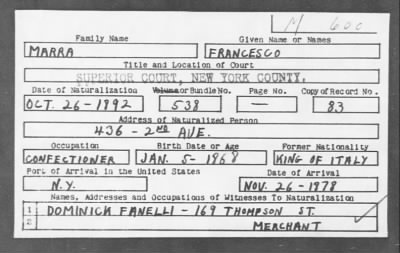 M 600
Family Name Given Name or Names
MARRA FRANCESCO
Title and Location of Court
SUPERIOR COURT, NEW YORK COUNTY.
Date of Naturalization Volume or Bundle No. Page No. Copy of Record No.
OCT. 26-1892 538 — 83
Address of Naturalized Person
436 - 2ND AVE.
Occupation Birth Date or Age Former Nationality
CONFECTIONER JAN. 5-1868 KING OF ITALY
Port of Arrival in the United States Date of Arrival
N.Y. NOV. 26-1878
Names, Addresses and Occupations of Witnesses To Naturalization
1 DOMINICK FANELLI - 169 THOMPSON ST.
2 MERCHANT